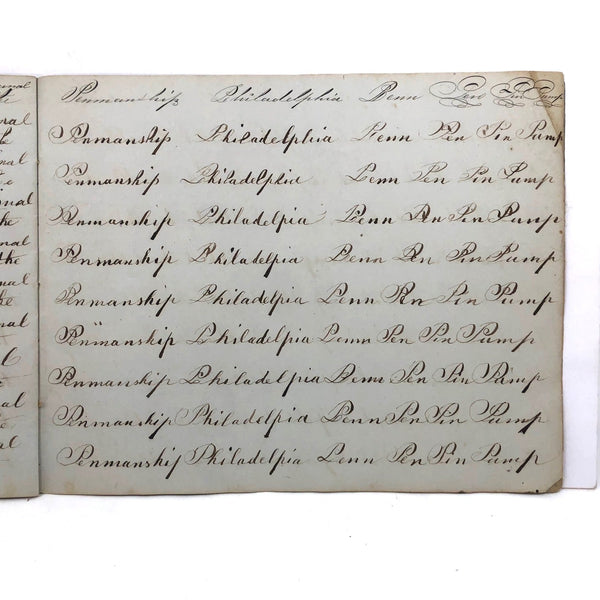 Penmanship Philadelphia Penn Pen Pin Pump
Penmanship Philadelphia Penn Pen Pin Pump
Penmanship Philadelphia Penn Pen Pin Pump
Penmanship Philadelpia Penn Pen Pin Pump
Penmanship Philadelpia Penn Pen Pin Pump
Penmanship Philadelpia Penn Pen Pin Pump
Penmanship Philadelpia Penn Pen Pin Pump
Penmanship Philadelpia Penn Pen Pin Pump
Penmanship Philadelpia Penn Pen Pin Pump
Penmanship Philadelpia Penn Pen Pin Pump